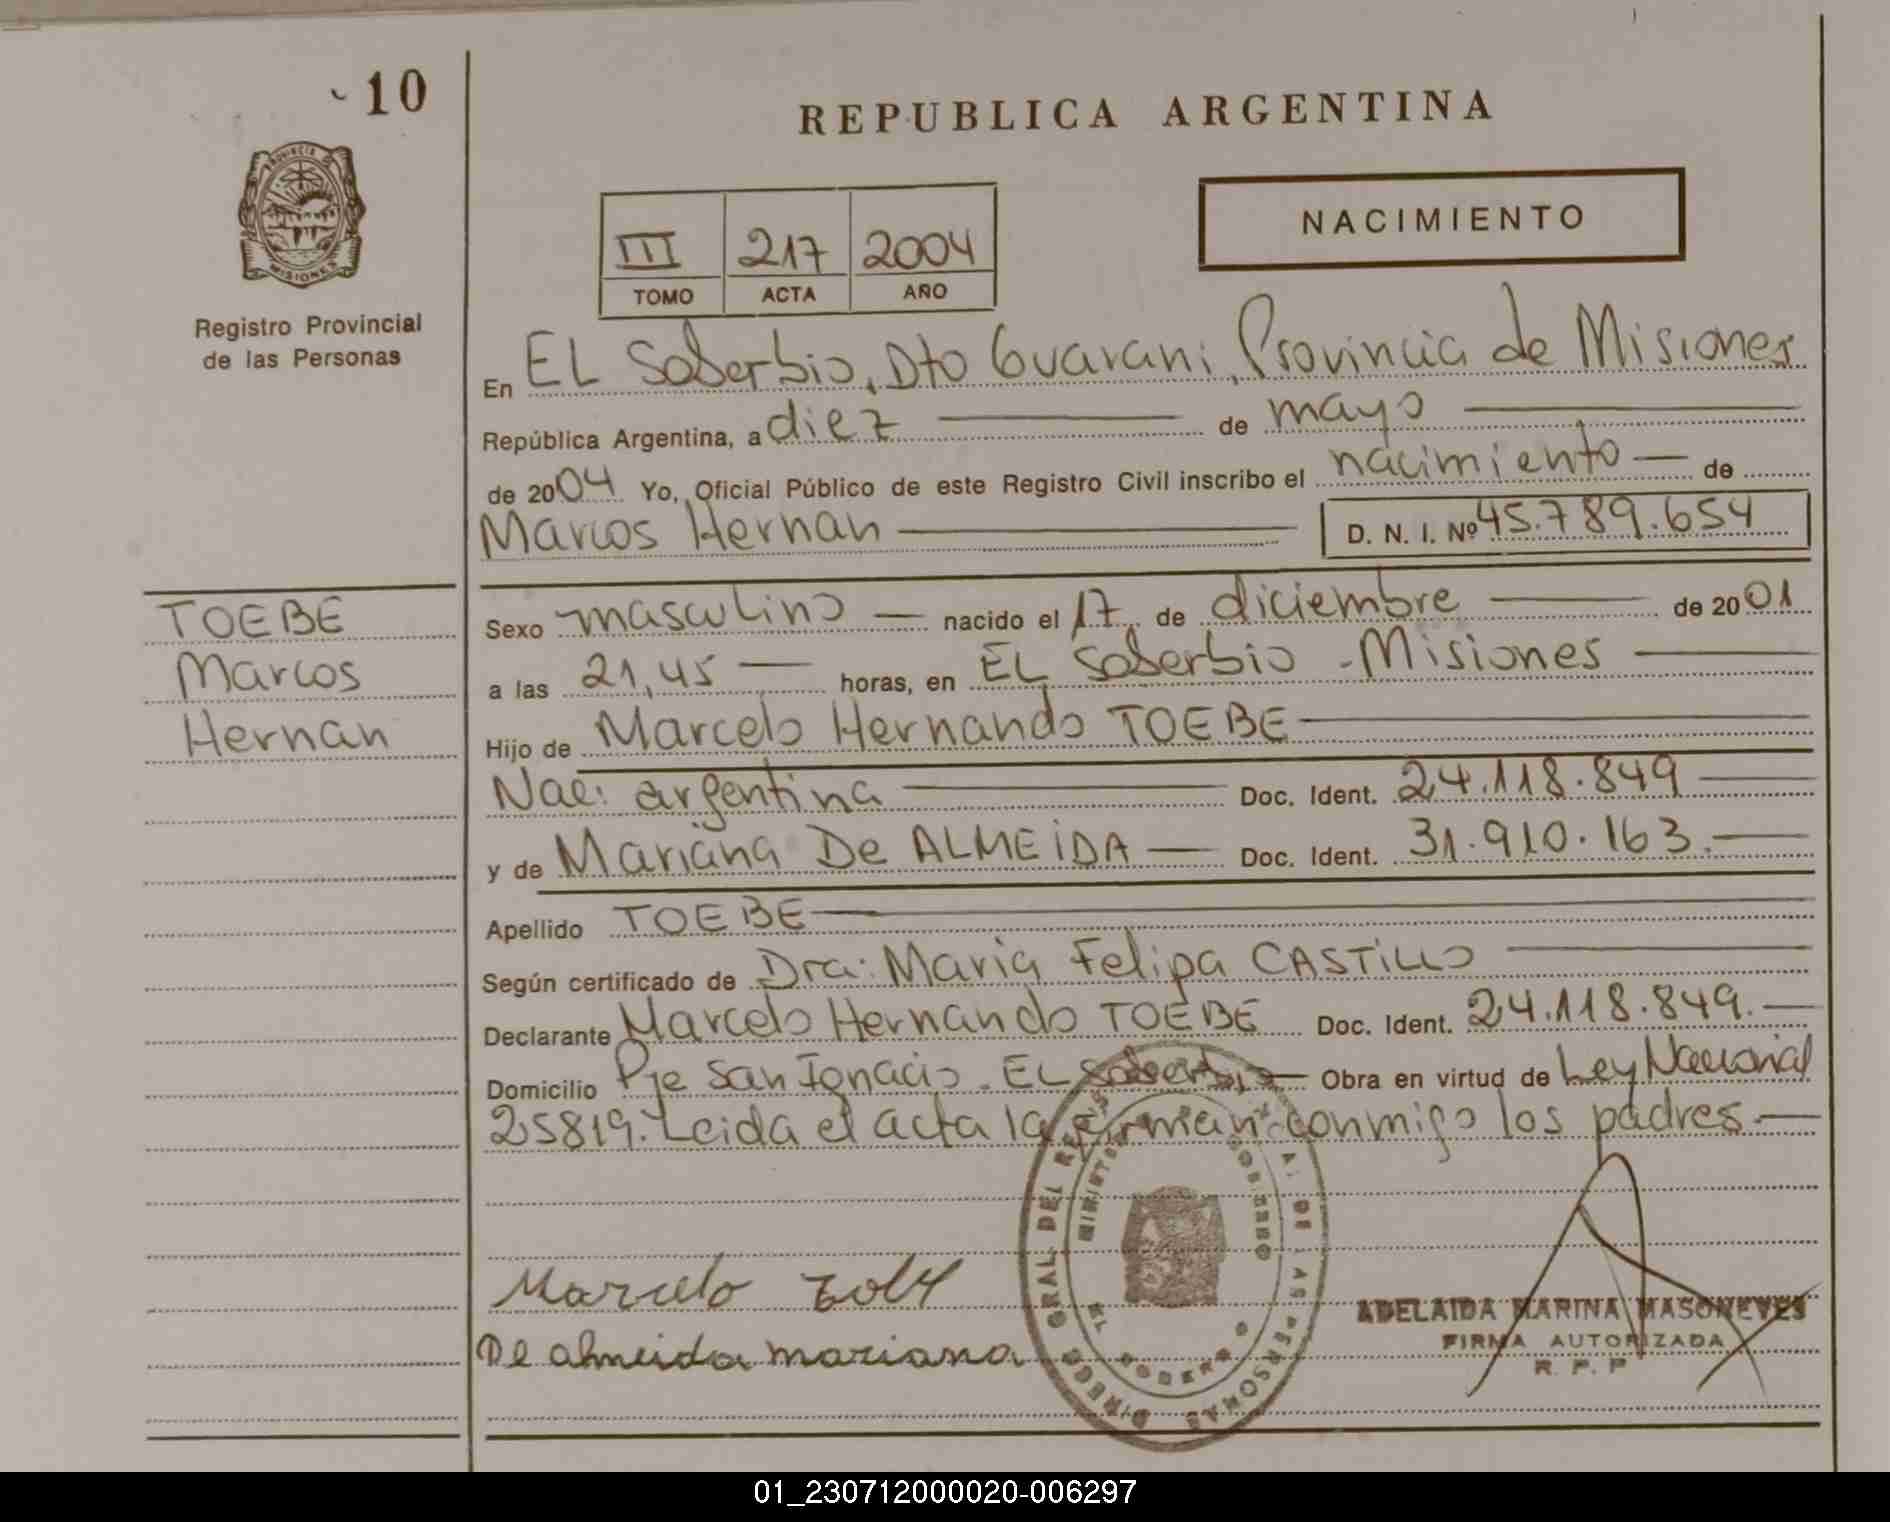 10
REPUBLICA ARGENTINA
PROVINCIA DE
MISIONES
Registro Provincial
de las Personas
III 217 2004
TOMO ACTA AÑO
NACIMIENTO
En EL Soberbio, Dto Guarani, Provincia de Misiones
República Argentina, a diez de mayo
de 2004 Yo, Oficial Público de este Registro Civil inscribo el nacimiento de
Marcos Hernan D. N. I. Nº 45.789.654
TOEBE
Marcos
Hernan
Sexo masculino nacido el 17 de diciembre de 2001
a las 21,45 horas, en EL Soberbio - Misiones
Hijo de Marcelo Hernando TOEBE
Nac: argentina Doc. Ident. 24.118.849
y de Mariana De ALMEIDA Doc. Ident. 31.910.163.
Apellido TOEBE
Según certificado de Dra: Maria Felipa CASTILLO
Declarante Marcelo Hernando TOEBE Doc. Ident. 24.118.849.
Domicilio Pje San Ignacio - EL Soberbio Obra en virtud de Ley Nacional
25819. Leida el acta la firman conmigo los padres.
Marcelo
De almeida mariana
ADELAIDA MARINA MASONEVES
FIRMA AUTORIZADA
R. P. P
01_230712000020-006297